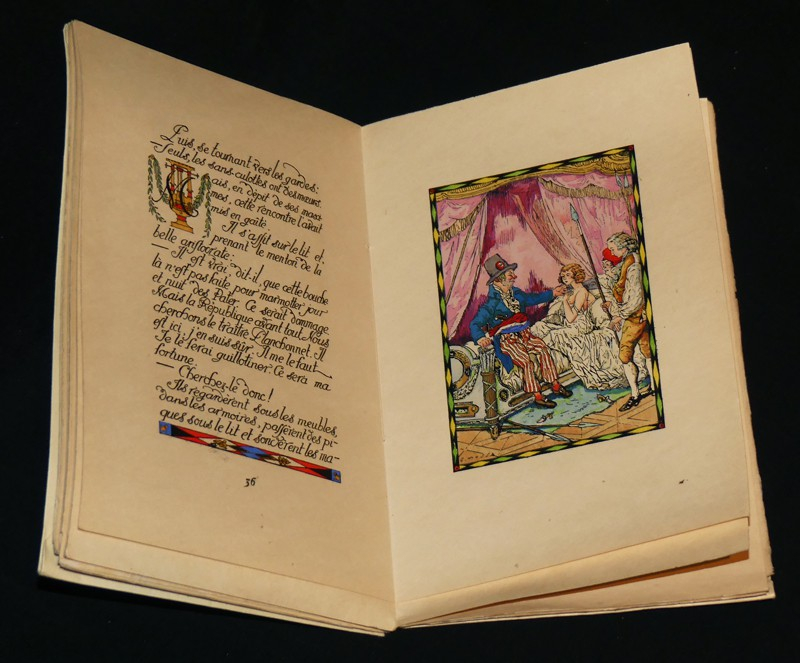 Puis, se tournant vers les gardes:
— Seuls, les sans-culottes ont des mœurs.
Mais, en dépit de ses maxi-
mes, cette rencontre l'avait
mis en gaîté.
Il s'assit sur le lit et,
prenant le menton de la
belle aristocrate:
— Il est vrai, dit-il, que cette bouche
là n'est pas faite pour marmotter jour
et nuit des Pater. Ce serait dommage.
Mais la République avant tout. Nous
cherchons le traître Planchonnet. Il
est ici; j'en suis sûr. Il me le faut.
Je le ferai guillotiner. Ce sera ma
fortune.
— Cherchez-le donc!
Ils regardèrent sous les meubles,
dans les armoires, passèrent des pi-
ques sous le lit et sondèrent les ma-
36